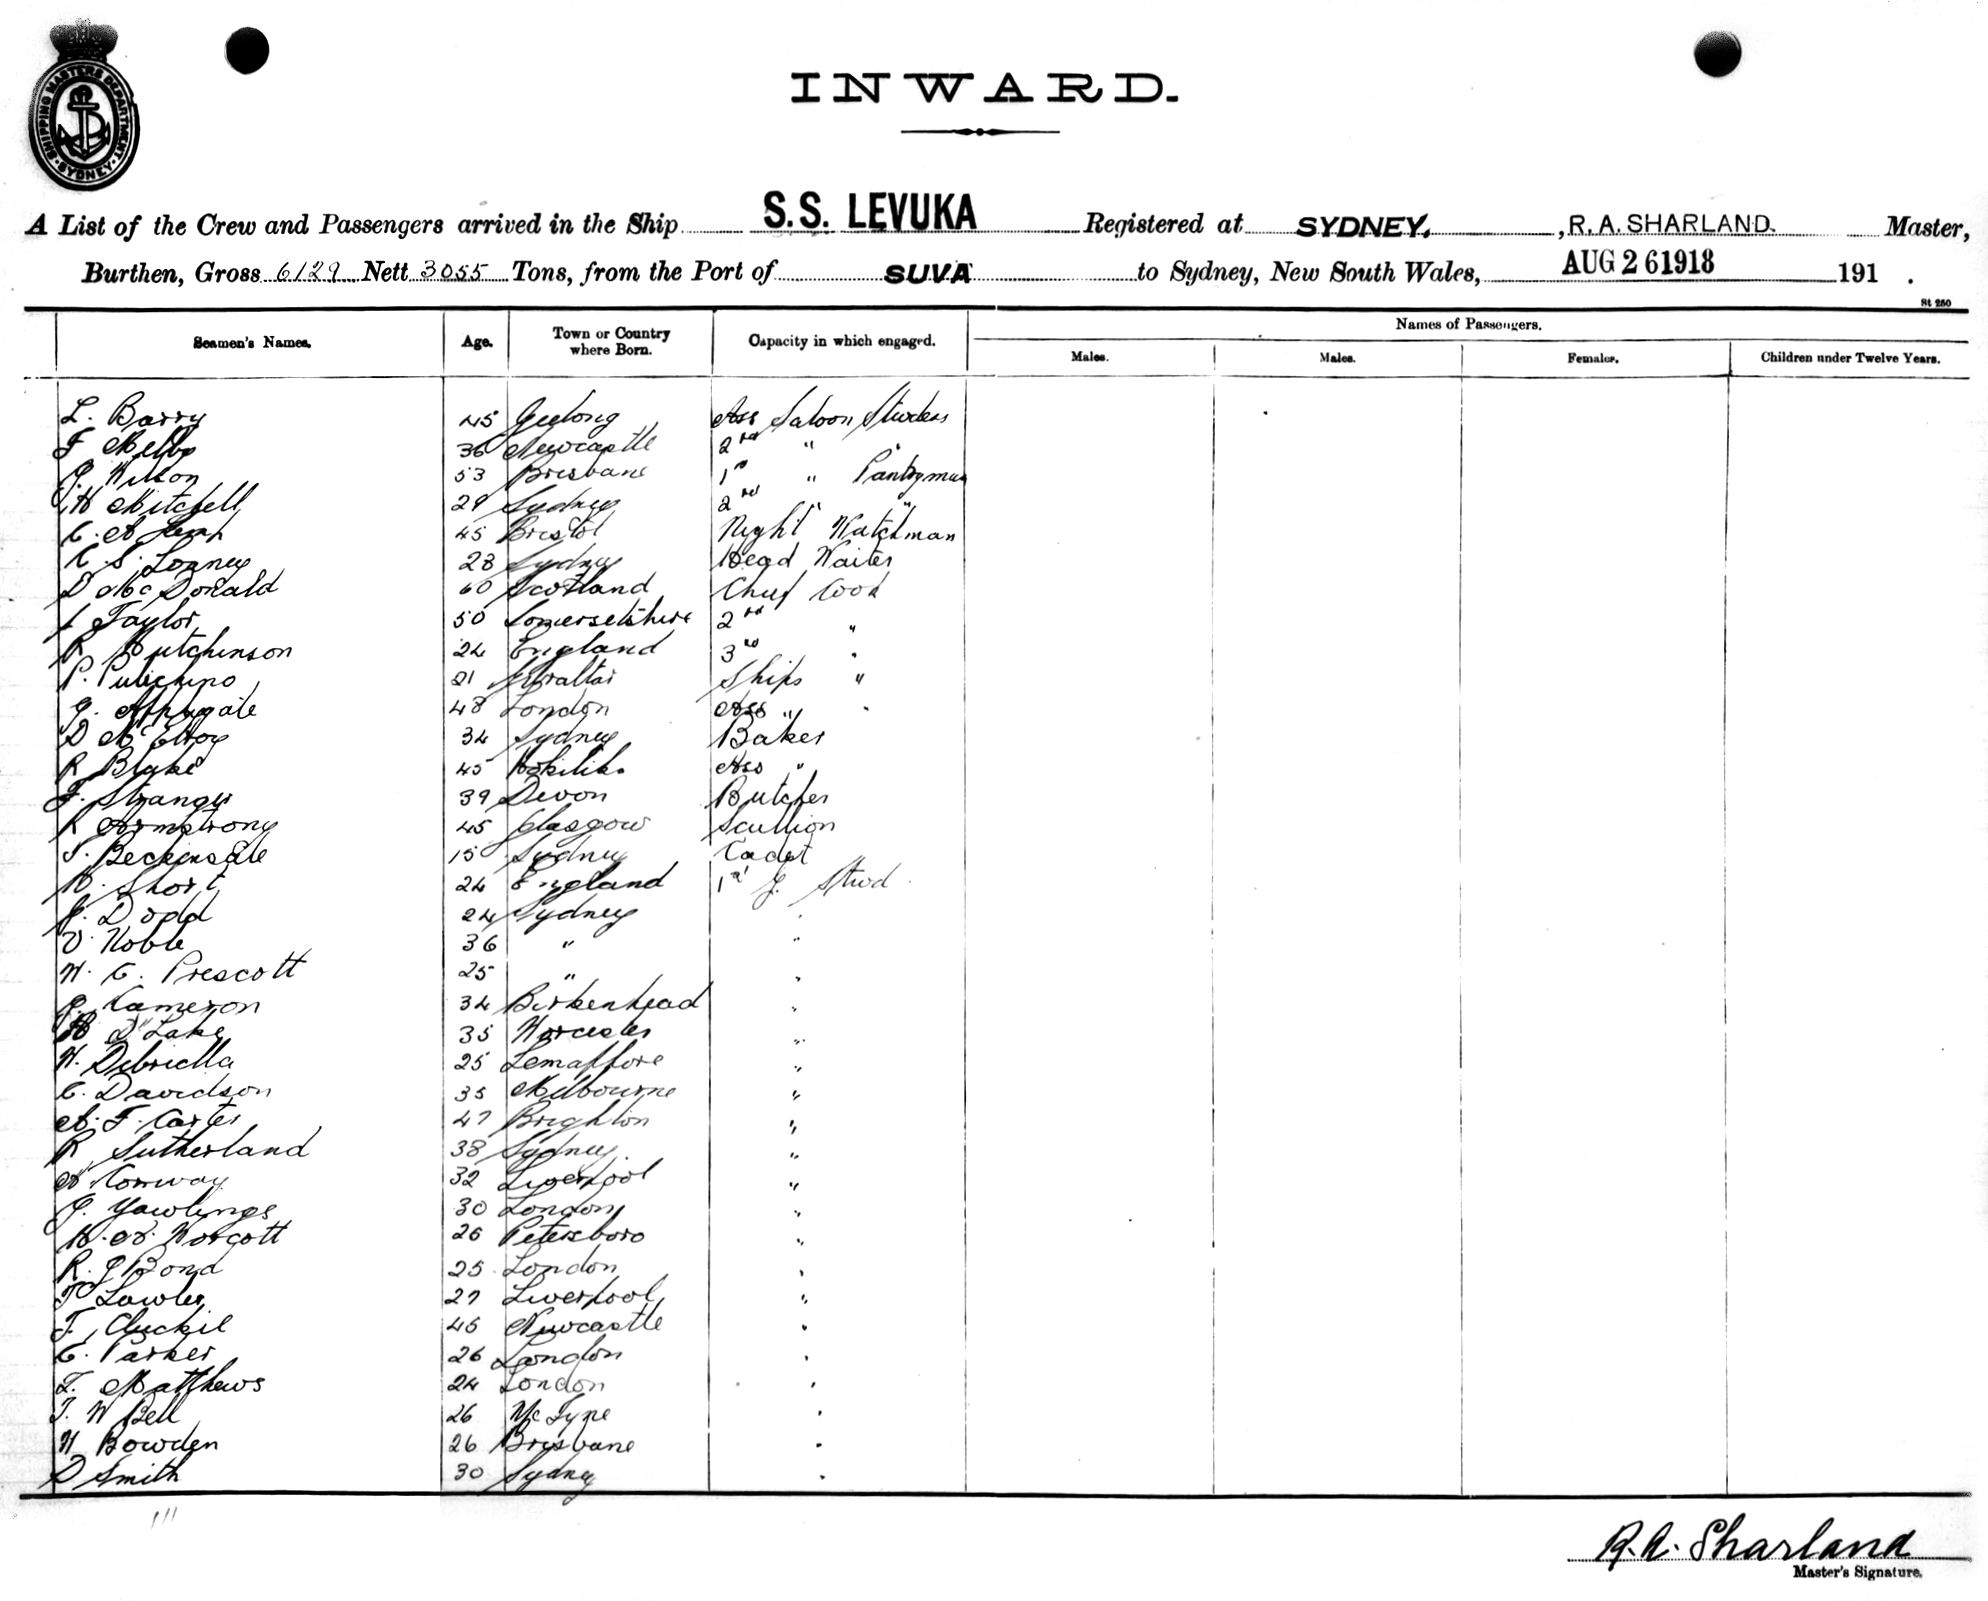 SHIPPING MASTERS DEPARTMENT SYDNEY
INWARD.
A List of the Crew and Passengers arrived in the Ship S.S. LEVUKA Registered at SYDNEY. , R. A. SHARLAND. Master,
Burthen, Gross 6129 Nett 3055 Tons, from the Port of SUVA to Sydney, New South Wales, AUG 26 1918 191 .
St 250
Seamen's Names. Age. Town or Country where Born. Capacity in which engaged. Names of Passengers.
Males. Males. Females. Children under Twelve Years.
L. Barry 45 Geelong Ass Saloon Stwdess
F 36 Newcastle 2nd " "
J. Wilson 53 Brisbane 1st " Pantryman
H Mitchell 29 Sydney 2nd " "
C. A 45 Bristol Night Watchman
C. S. Looney 28 Sydney Head Waiter
D McDonald 60 Scotland Chief Cook
Taylor 50 Somersetshire 2nd "
R Hutchinson 24 England 3rd "
P. 21 Gibraltar Ships "
G. Applegate 48 London Ass " "
D McElroy 34 Sydney Baker
R Blake 45 Hokitika Ass "
F. Stranger 39 Devon Butcher
R Armstrong 45 Glasgow Scullion
Beckinsale 15 Sydney Cadet
H. Short 24 England 1st G. Stwd.
J. Dodd 24 Sydney "
V. Noble 36 " "
W. C. Prescott 25 " "
J. Cameron 34 Birkenhead "
Lake 35 Worcester "
W. Debriella 25 "
C. Davidson 35 Melbourne "
A. F. Carter 47 Brighton "
R Sutherland 38 Sydney. "
A Conway 32 Liverpool "
J. Yawlings 30 London "
H. A. Worcott 26 Petersboro "
R. J Bond 25 London "
Lawler 27 Liverpool "
T. 45 Newcastle "
C. Parker 26 London "
T. Matthews 24 London "
T. W Bell 26 "
W Bowden 26 Brisbane "
D Smith 30 Sydney "
R. A. Sharland
Master's Signature.